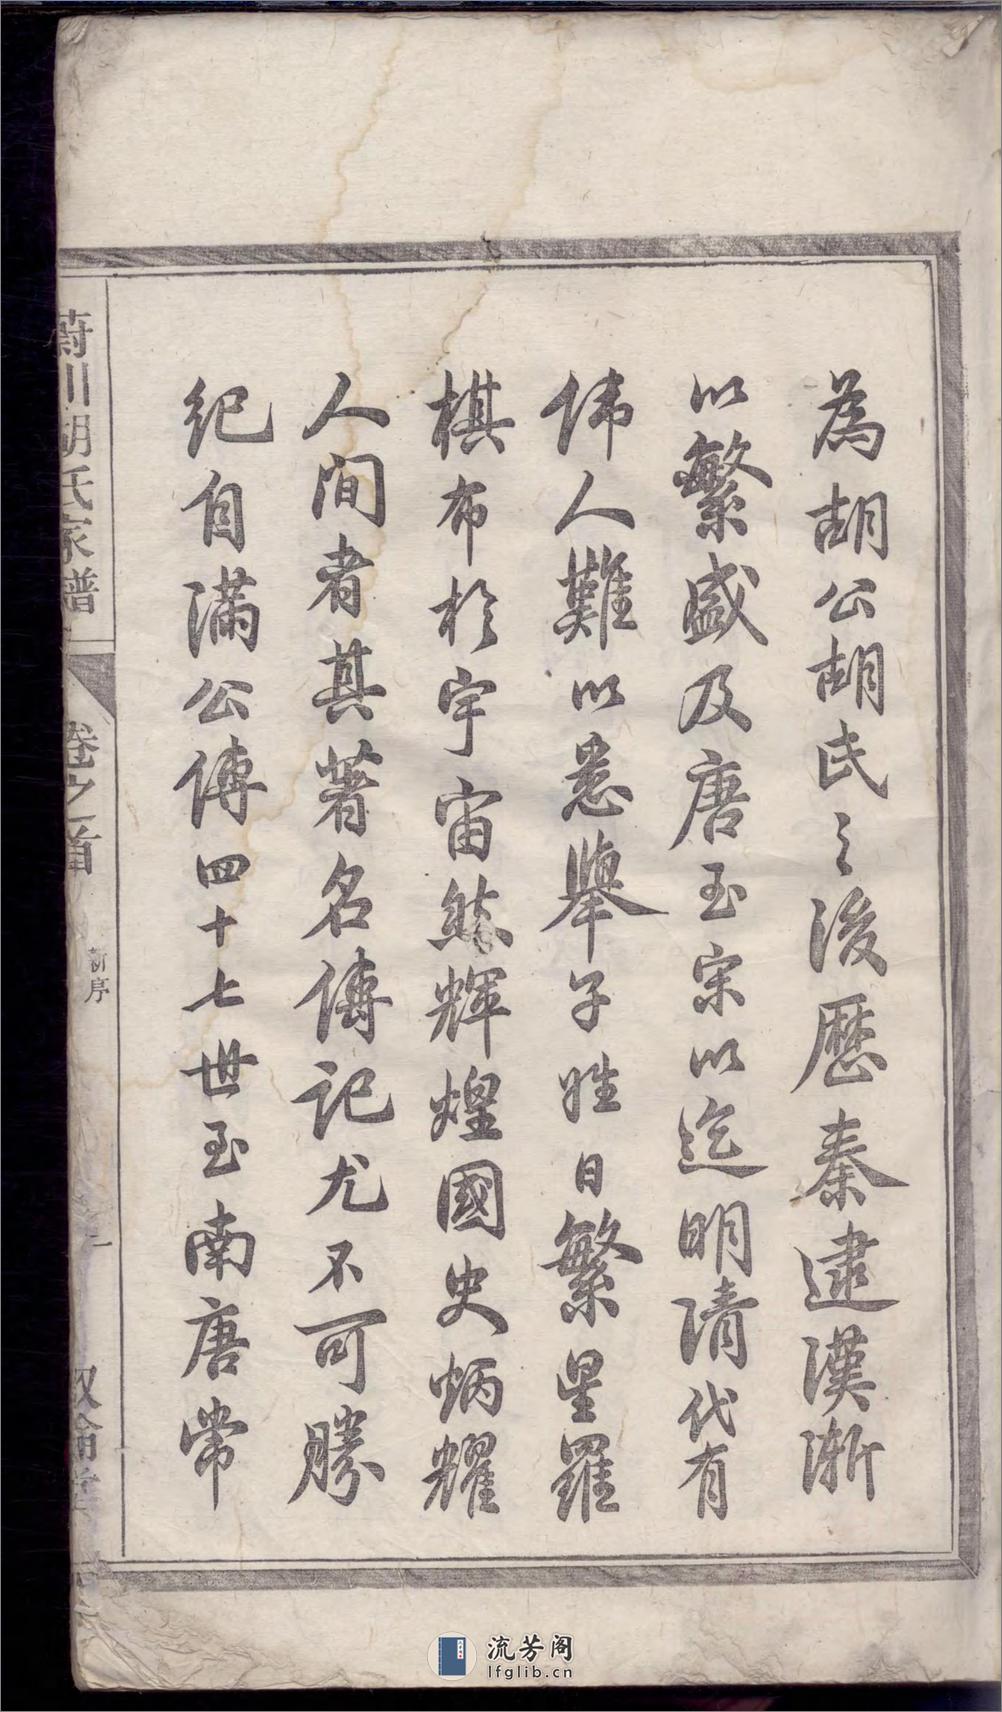 為胡公胡氏之後歷秦逮漢漸
以繁盛及唐至宋以迄明清代有
偉人難以悉舉子姓日繁星羅
棋布於宇宙然輝煌國史炳耀
人間者其著名傳記尤不可勝
紀自滿公傳四十七世至南唐常
蔚川胡氏家譜
卷之首
新序
一
叙倫堂
流芳阁
lfglib.cn